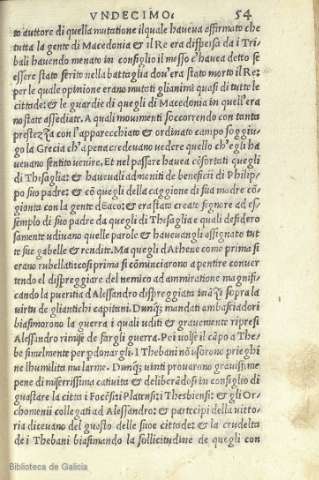 VNDECIMO. 54
to auttore di quella mutatione ilquale haueua affirmato che
tutta la gente di Macedonia & il Re era dispersa da i Tri
bali hauendo menato in consiglio il messo c'haueа detto se
essere stato ferito nella battaglia dou'era stato morto il Re:
per le quale opinione erano mutati gli animi quasi di tutte le
cittade: & le guardie di quegli di Macedonia in quell'era
no state assediate. A quali mouimenti soccorrendo con tanta
prestezza con l'apparecchiato & ordinato campo soggiu-
go la Grecia ch'a pena credeuano vedere quello ch'egli ha
ueuano sentito venire. Et nel passare haueа cōfortati quegli
di Thesaglia: & haueuali admoniti de beneficii di Philip-
po suo padre: & cō quegli della caggione di sua madre cōn
gionta con la gente d'Eaco: & era stato creato signore ad es
sempio di suo padre da quegli di Thesaglia e quali desidero
samente vdiuano quelle parole: & haueuangli assignato tut
te sue gabelle & rendite. Ma quegli d'Athene come prima si
erano rubellati cosi prima si cōminciarono a pentire conuer
tendo el disprеggiare del nemico ad ammiratione magnifi
cando la pueritia d'Alessandro dispreggiata ināzi sopra la
virtu de gli antichi capitani. Dunq; mandati ambasciadori
biasimorono la guerra i quali vditi & grauemente ripresi
Alessandro rimise de fargli guerra. Poi volse il cāpo a The
be similmente perdonargli. I Thebani nō vsorono prieghi
ne l'humilita ma l'arme. Dunq; vinti prouarono graui
pene di miserrissima catiuita & deliberādosi in consiglio di
guastare la citta i Focēsi Platensi Thesbiensi: & gli Or-
chomenii collegati ad Alessandro: & partecipi della vitto-
ria diceuano del guasto delle sue cittade: & la crudelta
de i Thebani biasimando la sollicitudine de quegli con
Biblioteca de Galicia